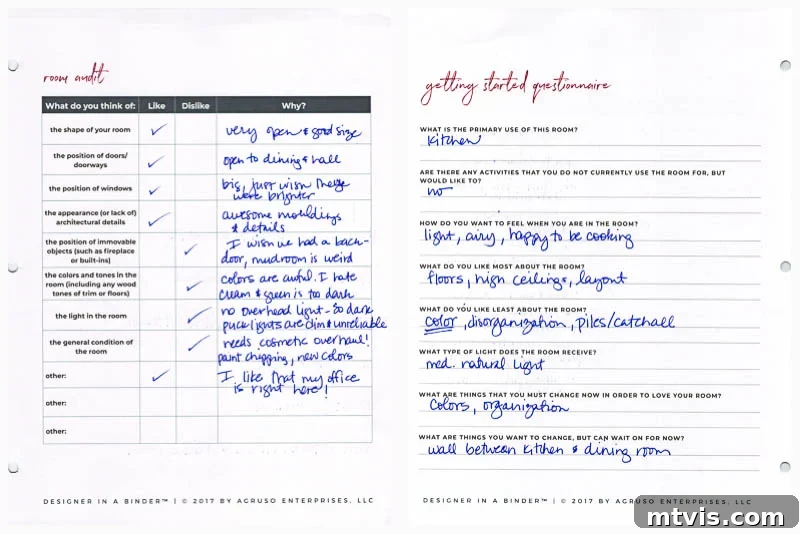 room audit
What do you think of: Like Dislike Why?
the shape of your room ✓ very open & good size
the position of doors/
doorways ✓ open to dining & hall
the position of windows ✓ big, just wish they
were brighter
the appearance (or lack of)
architectural details ✓ awesome mouldings
& details
the position of immovable
objects (such as fireplace
or built-ins) ✓ I wish we had a back-
door, mudroom is weird
the colors and tones in the
room (including any wood
tones of trim or floors) ✓ colors are awful. I hate
cream & green is too dark
the light in the room ✓ no overhead light - so dark
puck lights are dim & unreliable
the general condition of
the room ✓ needs cosmetic overhaul!
paint chipping, new colors
other: ✓ I like that my office
is right here!
other:
other:
DESIGNER IN A BINDER™ | © 2017 BY AGRUSO ENTERPRISES, LLC
getting started questionnaire
WHAT IS THE PRIMARY USE OF THIS ROOM?
kitchen
ARE THERE ANY ACTIVITIES THAT YOU DO NOT CURRENTLY USE THE ROOM FOR, BUT
WOULD LIKE TO?
no
HOW DO YOU WANT TO FEEL WHEN YOU ARE IN THE ROOM?
light, airy, happy to be cooking
WHAT DO YOU LIKE MOST ABOUT THE ROOM?
floors, high ceilings, layout
WHAT DO YOU LIKE LEAST ABOUT THE ROOM?
color, disorganization, piles/catchall
WHAT TYPE OF LIGHT DOES THE ROOM RECEIVE?
med. natural light
WHAT ARE THINGS THAT YOU MUST CHANGE NOW IN ORDER TO LOVE YOUR ROOM?
colors, organization
WHAT ARE THINGS YOU WANT TO CHANGE, BUT CAN WAIT ON FOR NOW?
wall between kitchen & dining room
DESIGNER IN A BINDER™ | © 2017 BY AGRUSO ENTERPRISES, LLC
mtvis.com